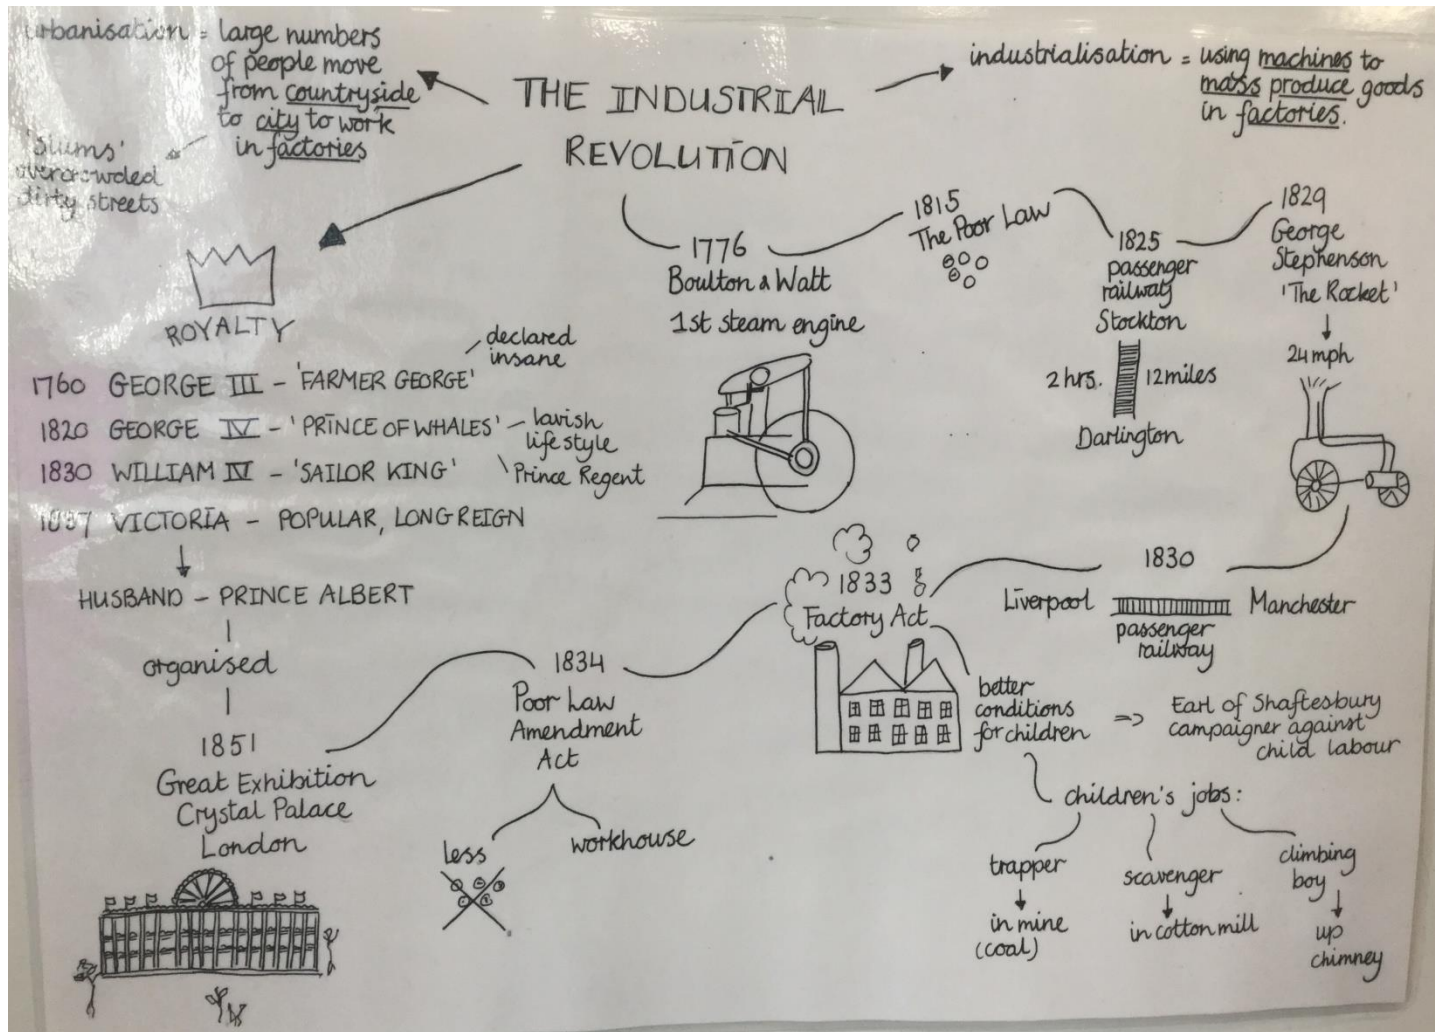 THE INDUSTRIAL
REVOLUTION
urbanisation = large numbers
of people move
from countryside
to city to work
in factories
'Slums'
overcrowded
dirty streets
industrialisation = using machines to
mass produce goods
in factories.
ROYALTY
1760 GEORGE III - 'FARMER GEORGE'
declared
insane
1820 GEORGE IV - 'PRINCE OF WHALES' - lavish
lifestyle
Prince Regent
1830 WILLIAM IV - 'SAILOR KING'
1837 VICTORIA - POPULAR, LONG REIGN
HUSBAND - PRINCE ALBERT
organised
1851
Great Exhibition
Crystal Palace
London
1776
Boulton & Watt
1st steam engine
1815
The Poor Law
1825
passenger
railway
Stockton
2 hrs. 12 miles
Darlington
1829
George
Stephenson
'The Rocket'
24 mph
1830
Liverpool Manchester
passenger
railway
1833
Factory Act
better
conditions
for children
=> Earl of Shaftesbury
campaigner against
child labour
children's jobs:
trapper
in mine
(coal)
scavenger
in cotton mill
climbing
boy
up
chimney
1834
Poor Law
Amendment
Act
less
workhouse